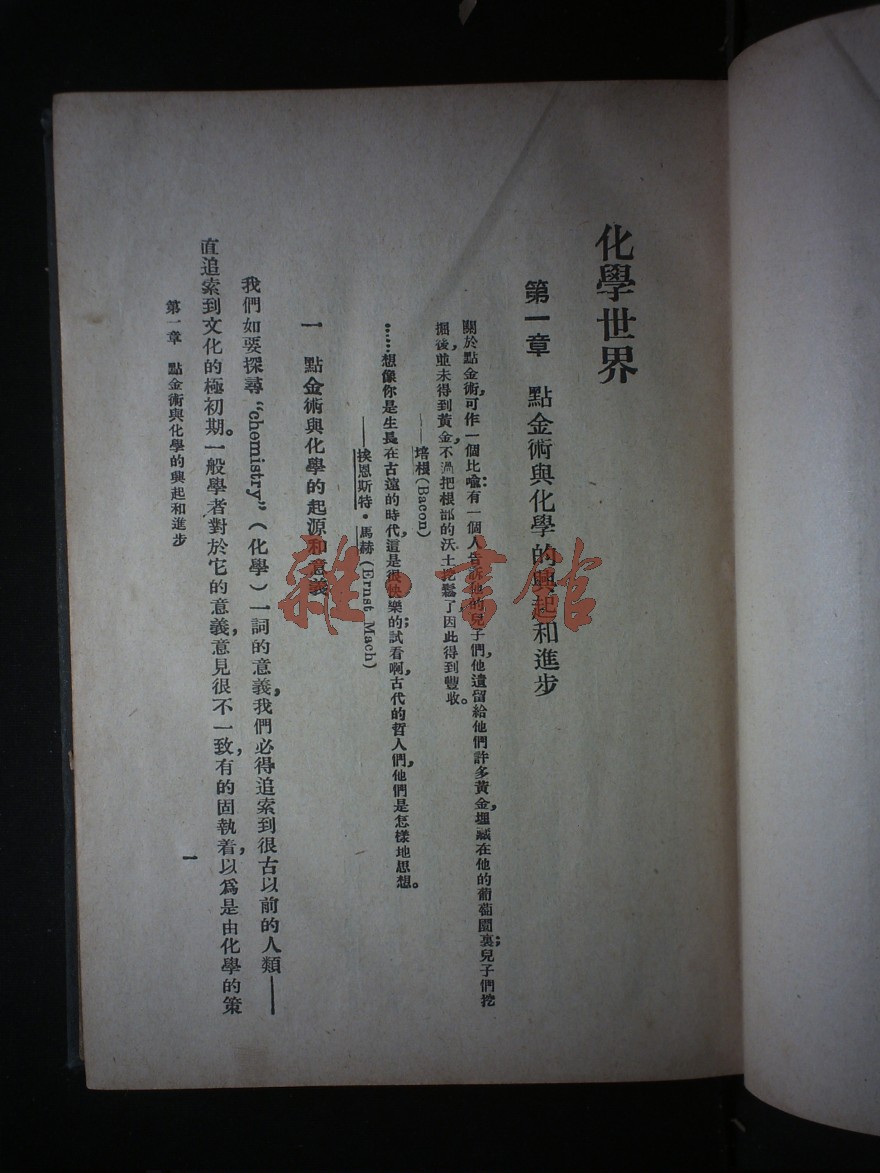 化學世界
第一章　點金術與化學的興起和進步
關於點金術，可作一個比喩：有一個人告訴他的兒子們，他遺留給他們許多黃金，埋藏在他的葡萄園裏；兒子們挖
掘後，並未得到黃金，不過把根部的沃土挖鬆了因此得到豐收。
——培根(Bacon)
……想像你是生長在古遠的時代，這是很快樂的；試看啊，古代的哲人們，他們是怎樣地思想。
——挨恩斯特·馬赫(Ernst Mach)
一　點金術與化學的起源和意義
我們如要探尋“chemistry”(化學)一詞的意義，我們必得追索到很古以前的人類——
直追索到文化的極初期。一般學者對於它的意義，意見很不一致，有的固執着，以爲是由化學的策
第一章　點金術與化學的興起和進步
一
雜·書館